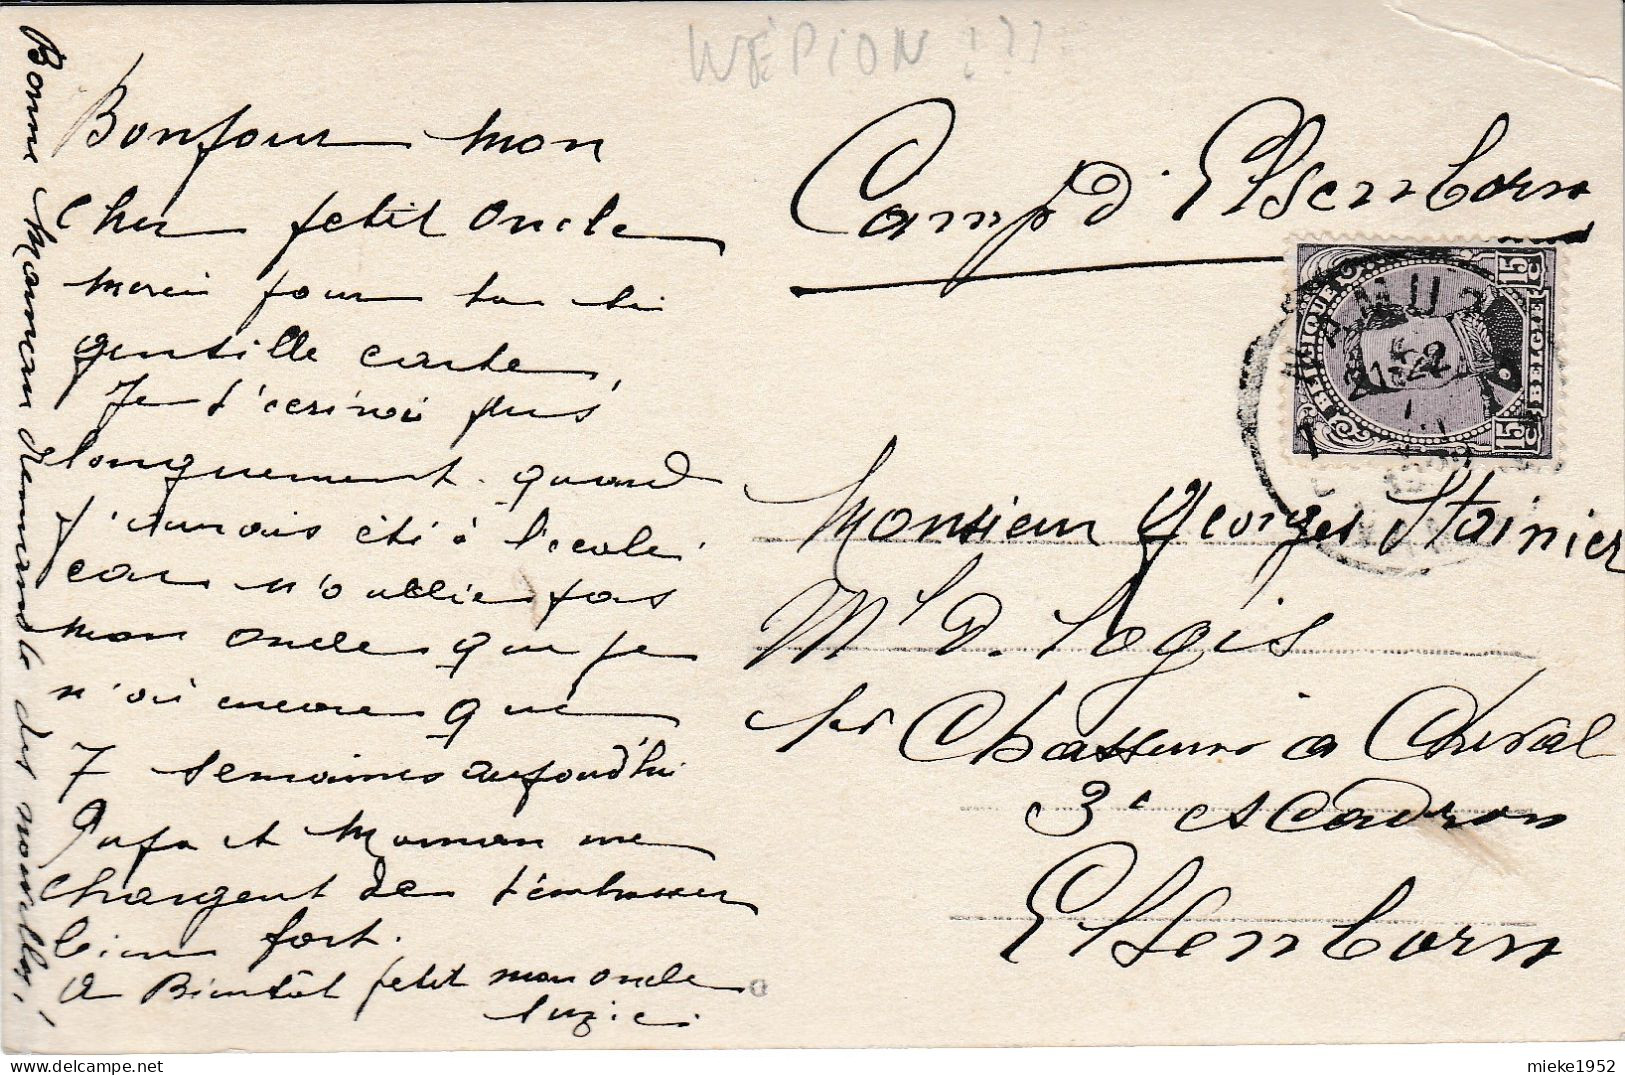 WÉPION ???
Bonjour mon
cher petit oncle
merci pour ta si
gentille carte,
Je t'ecrirai plus
longuement quand
j'aurais été à l'ecole
car n'oublie pas
mon oncle que je
n'ai encore que
7 semaines aujourd'hui
Papa et Maman me
chargent de t'embrasser
bien fort.
A Bientôt petit mon oncle
Suzie.
Bonne Maman demande des nouvelles!
Camp d'Elsenborn
BELGIQUE
BELGIE
15 C
15 C
NAMUR
Monsieur Georges Stainier
Ml D. Logis
1er Chasseurs a Cheval
3e escadron
Elsenborn
mieke1952